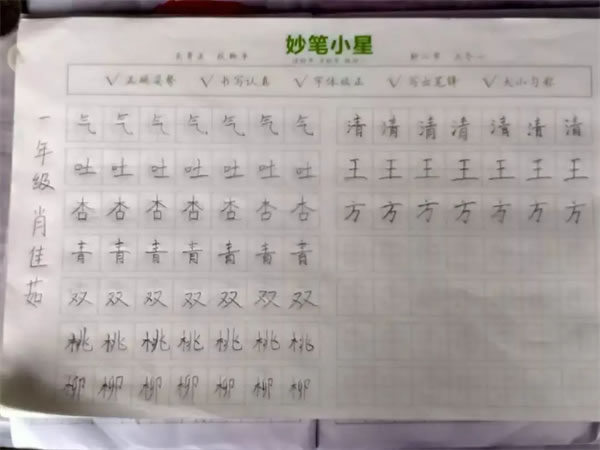 妙笔小星
✓正确姿势 ✓书写认真 ✓字体校正 ✓写出笔锋 ✓大小匀称
一年级 肖佳茹
气气气气气气气
吐吐吐吐吐吐吐
杏杏杏杏杏杏杏
青青青青青青青
双双双双双双双
桃桃桃桃桃桃桃
柳柳柳柳柳柳柳
清清清清清清清
王王王王王王王
方方方方方方方